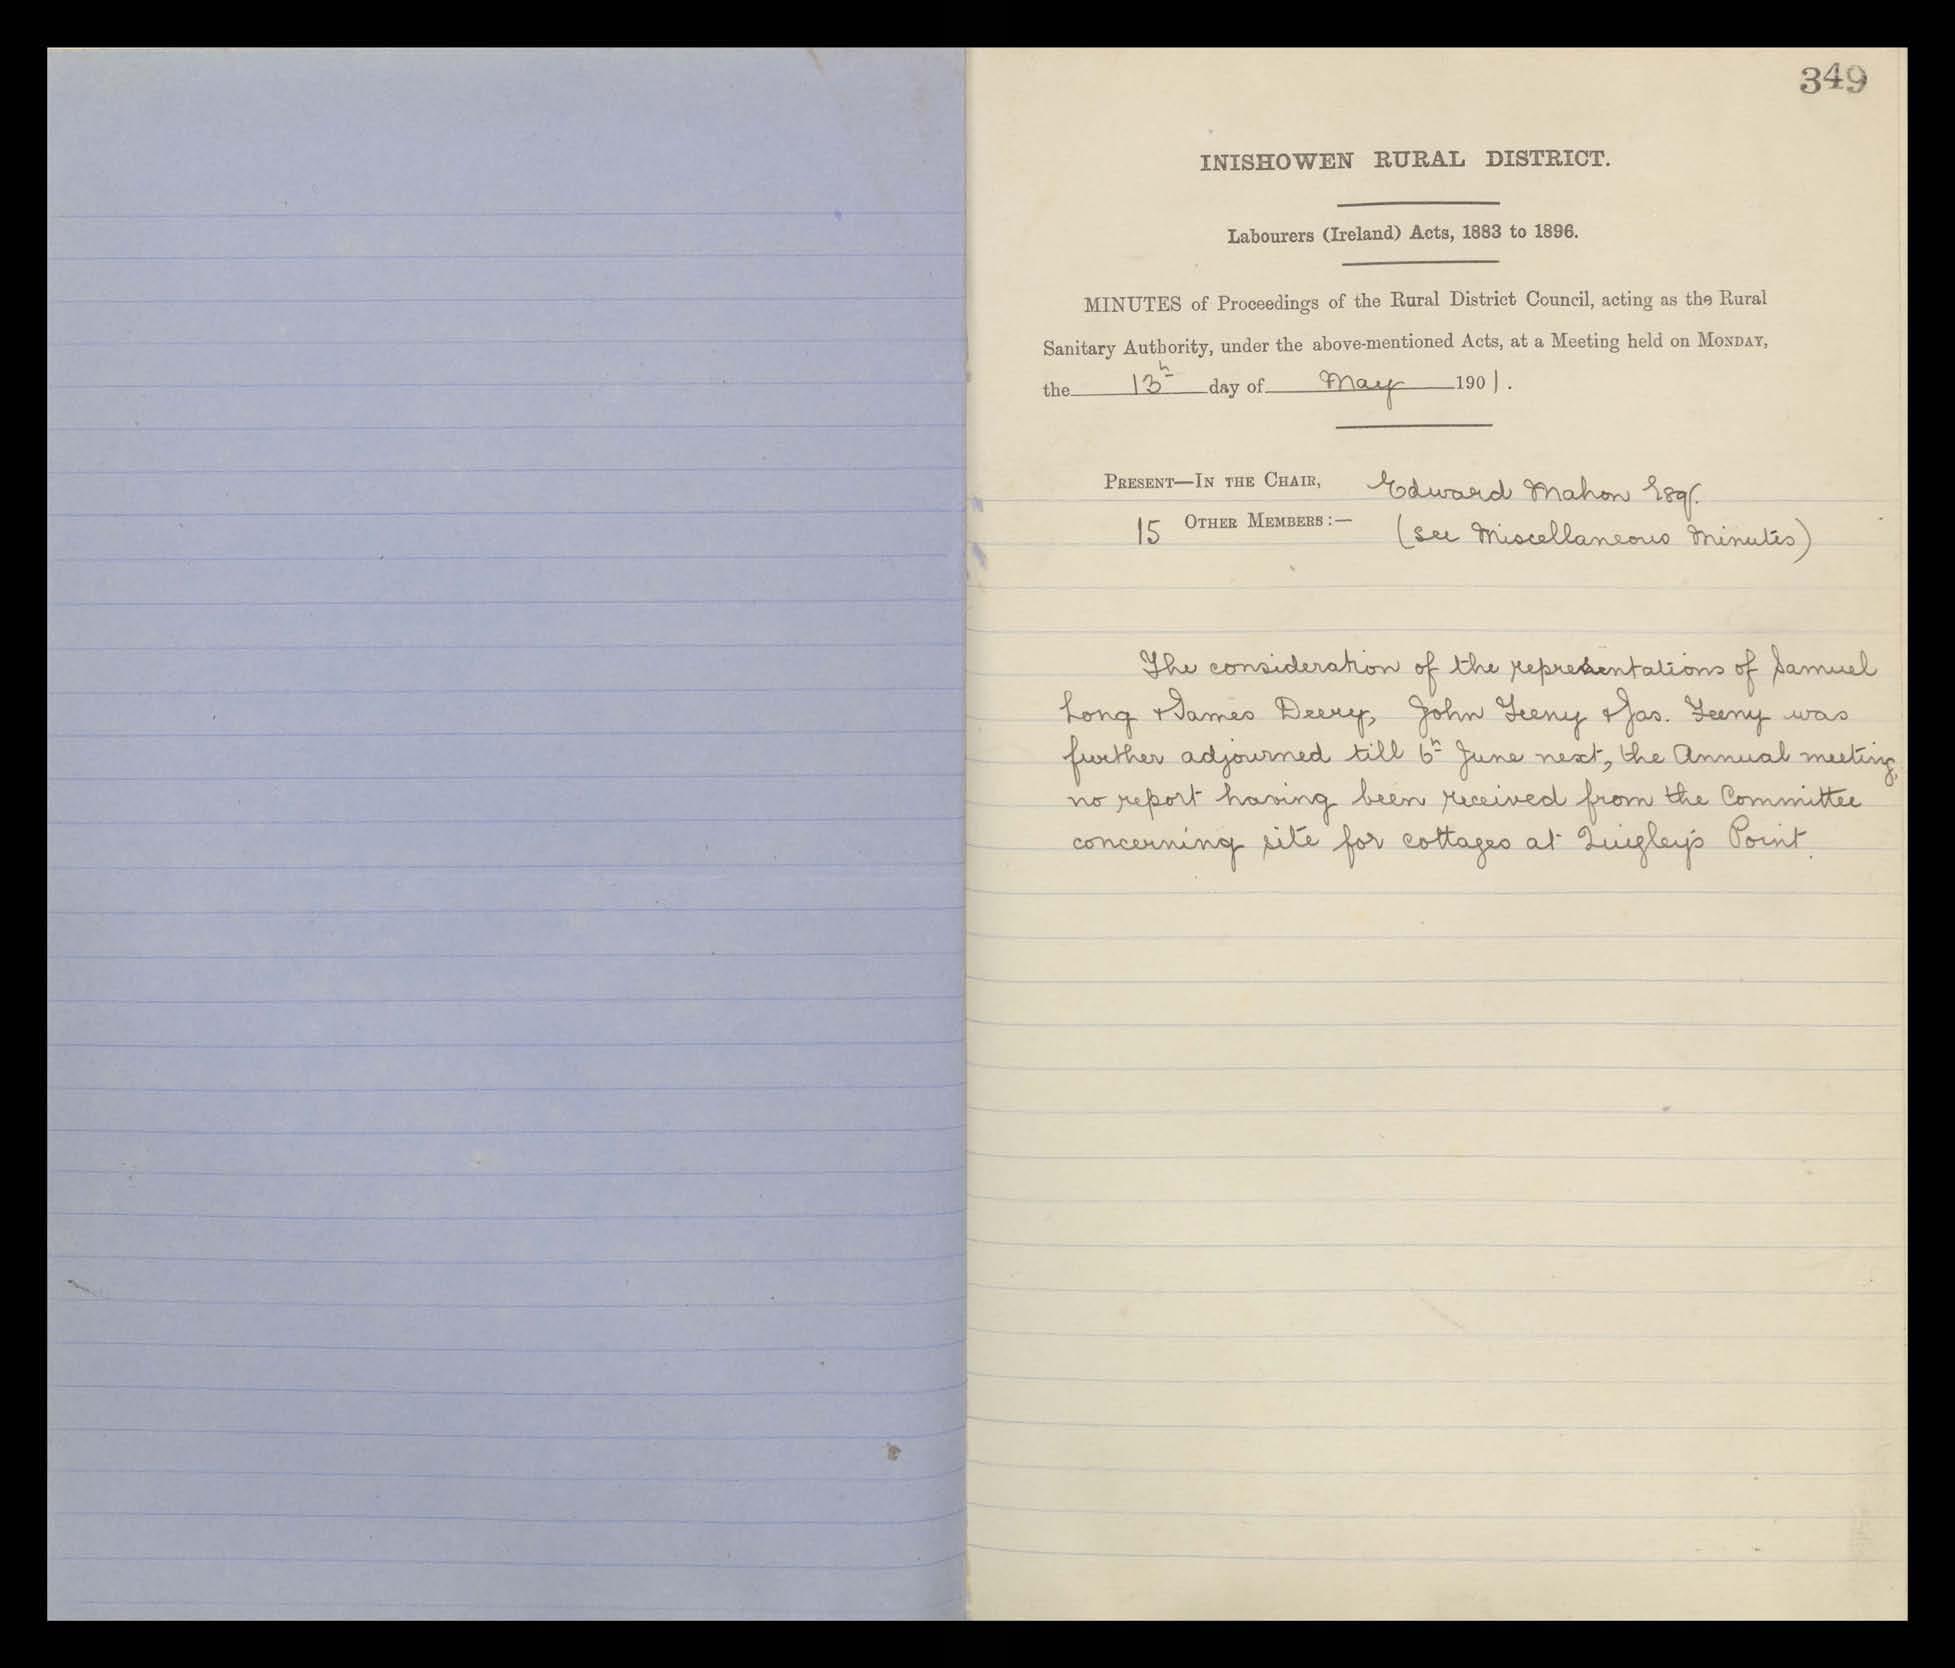 349
INISHOWEN RURAL DISTRICT.
Labourers (Ireland) Acts, 1883 to 1896.
MINUTES of Proceedings of the Rural District Council, acting as the Rural
Sanitary Authority, under the above-mentioned Acts, at a Meeting held on MONDAY,
the 13h day of May 1901.
PRESENT—IN THE CHAIR, Edward Mahon Esqr.
15 OTHER MEMBERS:— (see Miscellaneous Minutes)
The consideration of the representations of Samuel
Long & James Deery, John Feeny & Jas. Feeny was
further adjourned till 6h June next, the Annual meeting,
no report having been received from the Committee
concerning site for cottages at Quigley's Point.